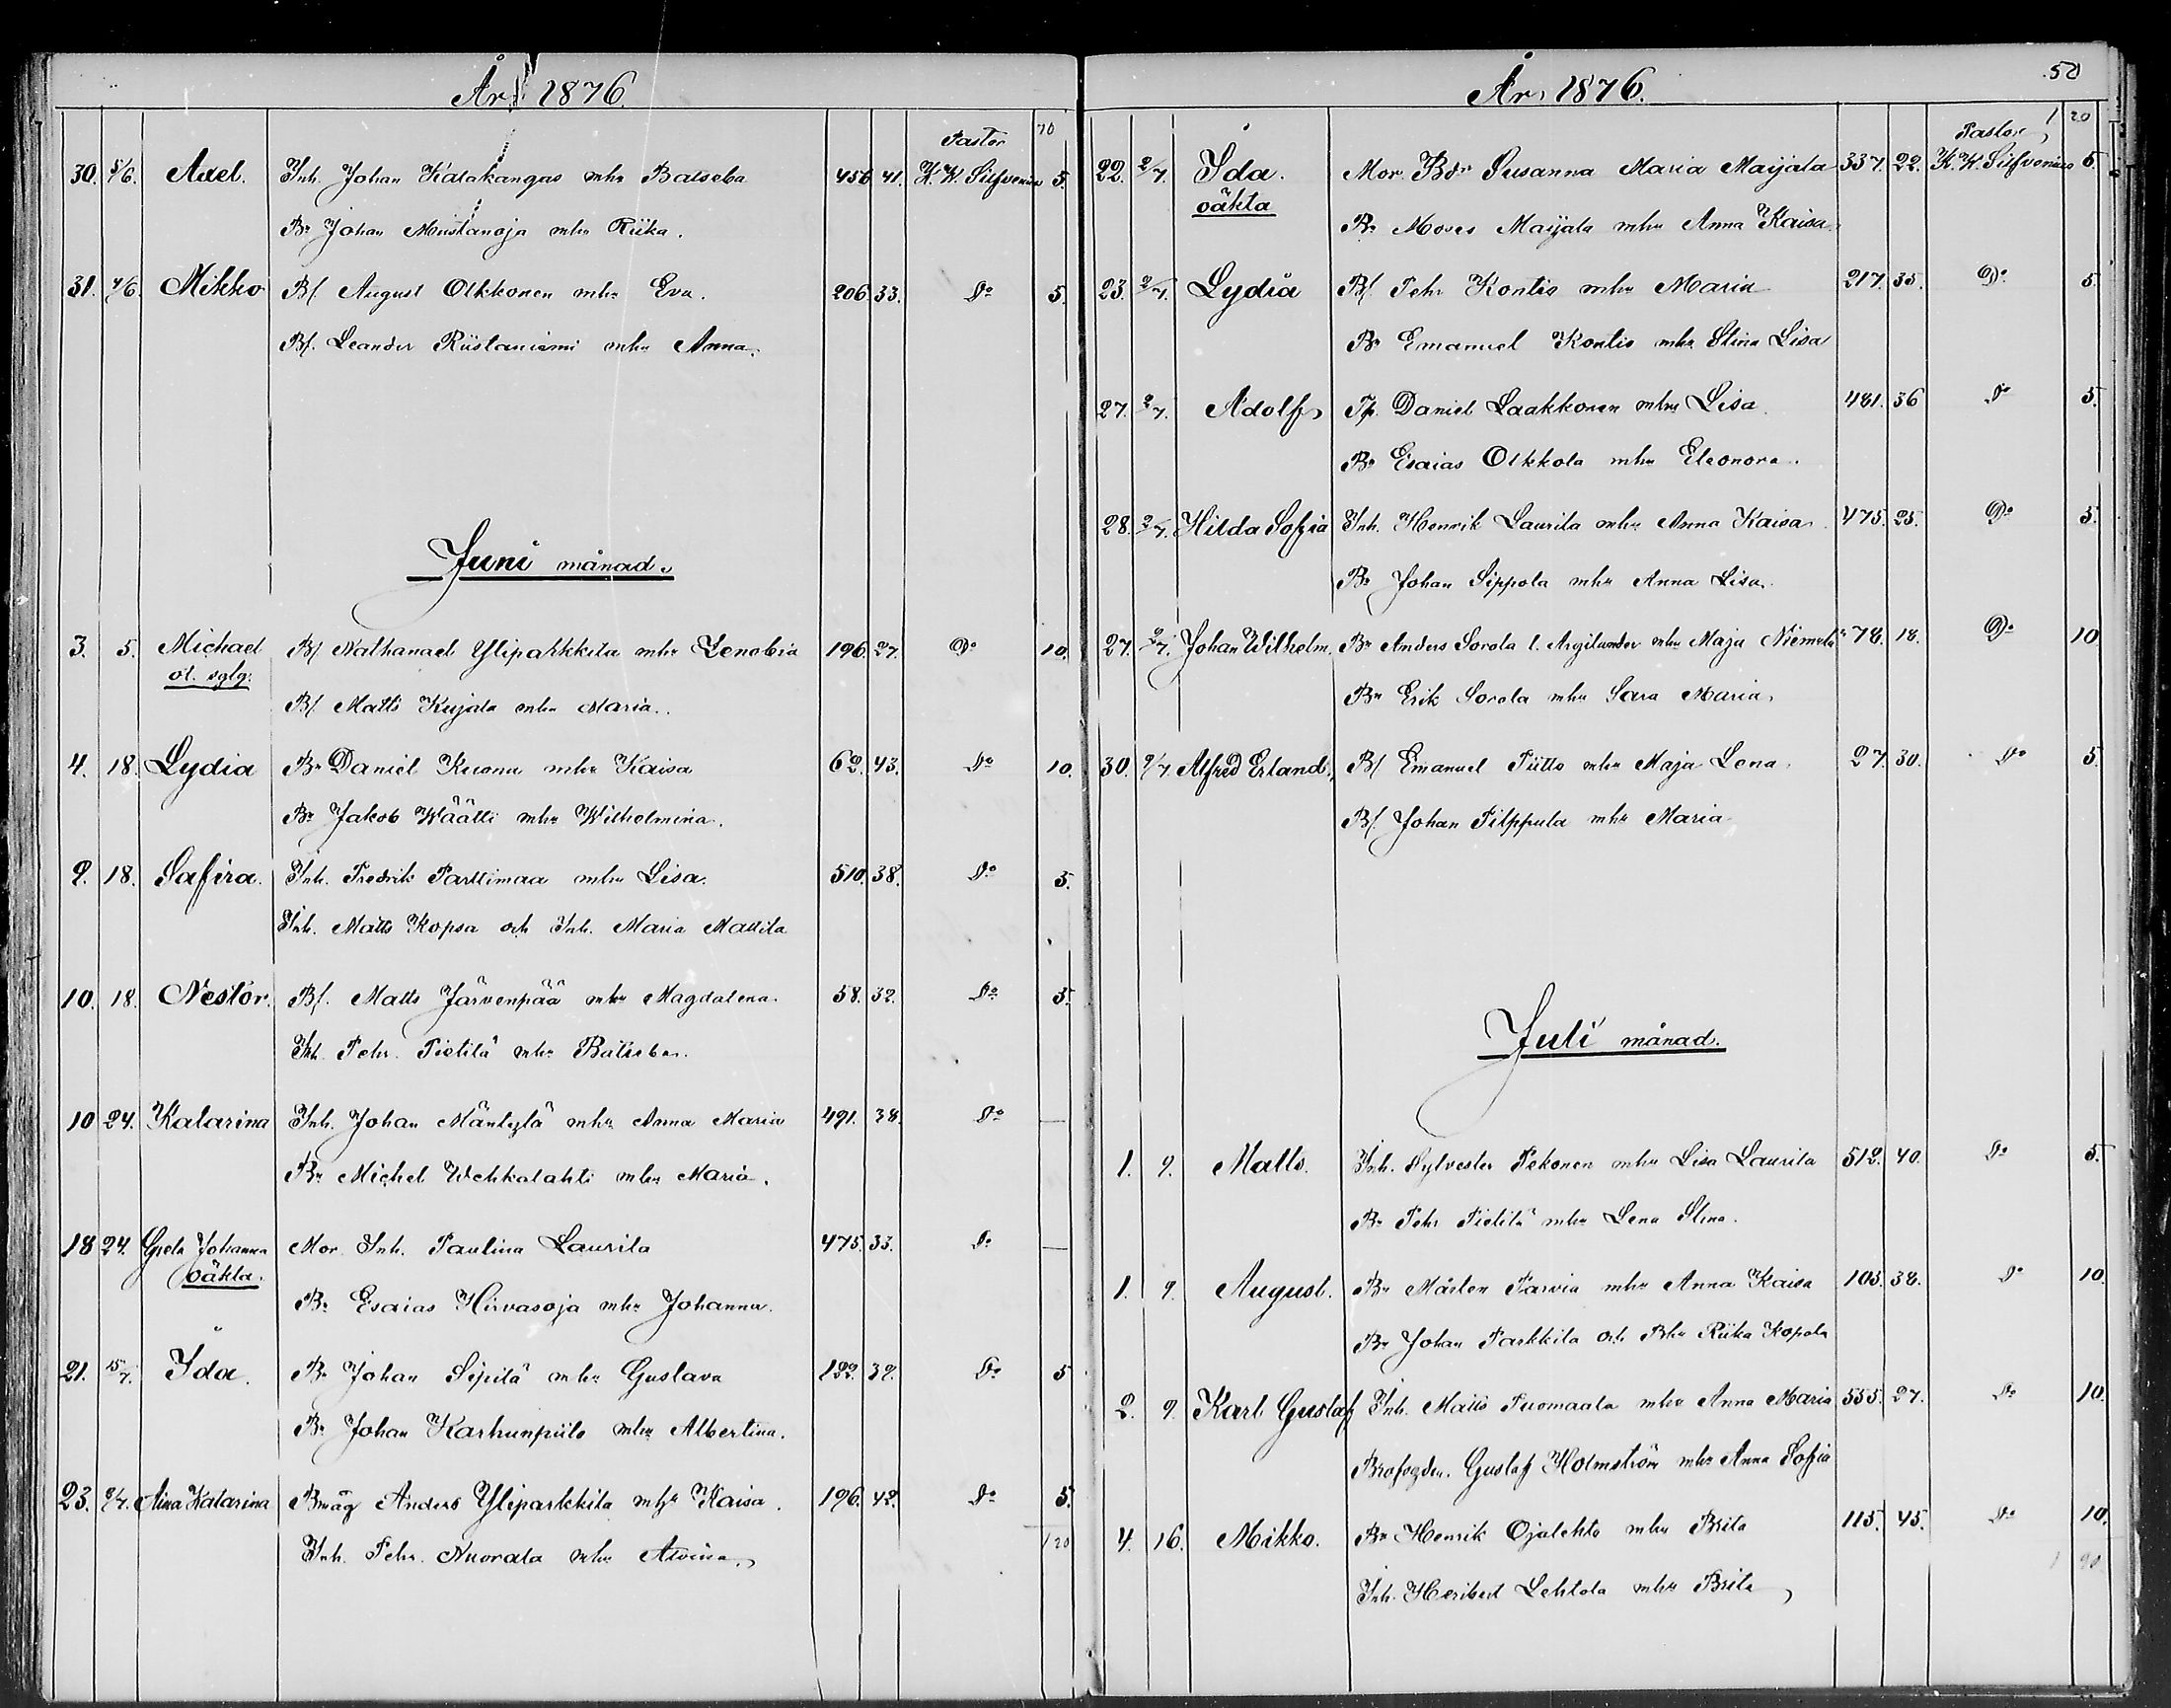 År 1876.
70
Pastor
30. 5/6. Axel. Inh. Johan Katakangas mhu Batseba 456 41. K. W. Silfvenius 5.
Br Johan Mustanoja mhu Riika.
31. 4/6. Mikko Bf. August Olkkonen mhu Eva. 206. 33. Do 5.
Bf. Leander Riistaniemi mhu Anna.
Juni månad.
3. 5. Michael Bf Nathanael Yliparkkila mhu Zenobia 196. 27. Do 10.
Bf. Matts Kujala mhu Maria.
4. 18. Lydia Br Daniel Kuonu mhu Kaisa 62. 43. Do 10.
Br Jakob Wäätti mhu Wilhelmina.
9. 18. Safira. Inh. Fredrik Parttimaa mhu Lisa. 510. 38. Do 5.
Inh. Matts Kopsa och Inh. Maria Mattila
10. 18. Nestor. Bf. Matts Järvenpää mhu Magdalena. 58. 32. Do 5.
Inh. Pehr Pietilä mhu Batseba.
10 24. Katarina Inh. Johan Mäntylä mhu Anna Maria 491. 38. Do —
Br Michel Wehkalahti mhu Maria.
18 24. Greta Johanna Mor Inh. Paulina Laurila 475. 33. Do —
oäkta.
Br Esaias Hirvasoja mhu Johanna.
21. 15/7. Ida. Br Johan Sipilä mhu Gustava 132. 32. Do 5
Br Johan Karhunpiilo mhu Albertina.
23. 2/7. Aina Katarina Bmåg Anders Yliparkkila mhu Kaisa. 196. 42. Do 5.
Inh. Pehr Nuorala mhu Alvina. 1 20
50
År 1876.
1 20
Pastor
22. 2/7. Ida. Mor Bdr Susanna Maria Maijala 337. 22. K. W. Silfvenius 5.
oäkta
Br Moses Maijala mhu Anna Kaisa.
23. 2/7. Lydia Bf. Pehr Kontio mhu Maria 217. 35. Do 5.
Br Emanuel Kontio mhu Stina Lisa
27. 2/7. Adolf Tp. Daniel Laakkonen mhu Lisa. 481. 36 Do 5.
Br Esaias Olkkola mhu Eleonora.
28. 2/7. Hilda Sofia Inh. Henrik Laurila mhu Anna Kaisa. 475. 25. Do 5.
Br Johan Sippola mhu Anna Lisa.
27. 2/7. Johan Wilhelm. Br Anders Sorola l. Argilander mhu Maja Niemelä 78. 18. Do 10
Br Erik Sorola mhu Sara Maria.
30. 9/7 Alfred Erland. Bf Emanuel Piitto mhu Maja Lena. 27. 30. Do 5.
Bf. Johan Filppula mhu Maria
Juli månad.
1. 9. Matts. Inh. Sylvester Pekonen mhu Lisa Laurila 512. 40. Do 5.
Br Pehr Pietilä mhu Lena Stina.
1. 9. August. Br Mårten Parvia mhu Anna Kaisa 103. 38. Do 10.
Br Johan Parkkila och Bhu Riika Kopola
2. 9. Karl Gustaf Inh. Matts Tuomaala mhu Anna Maria 555. 27. Do 10.
Brofogden. Gustaf Holmström mhu Anna Sofia
4. 16. Mikko. Br Henrik Ojalehto mhu Brita 115. 45. Do 10.
Inh. Heribert Lehtola mhu Brita 1 90